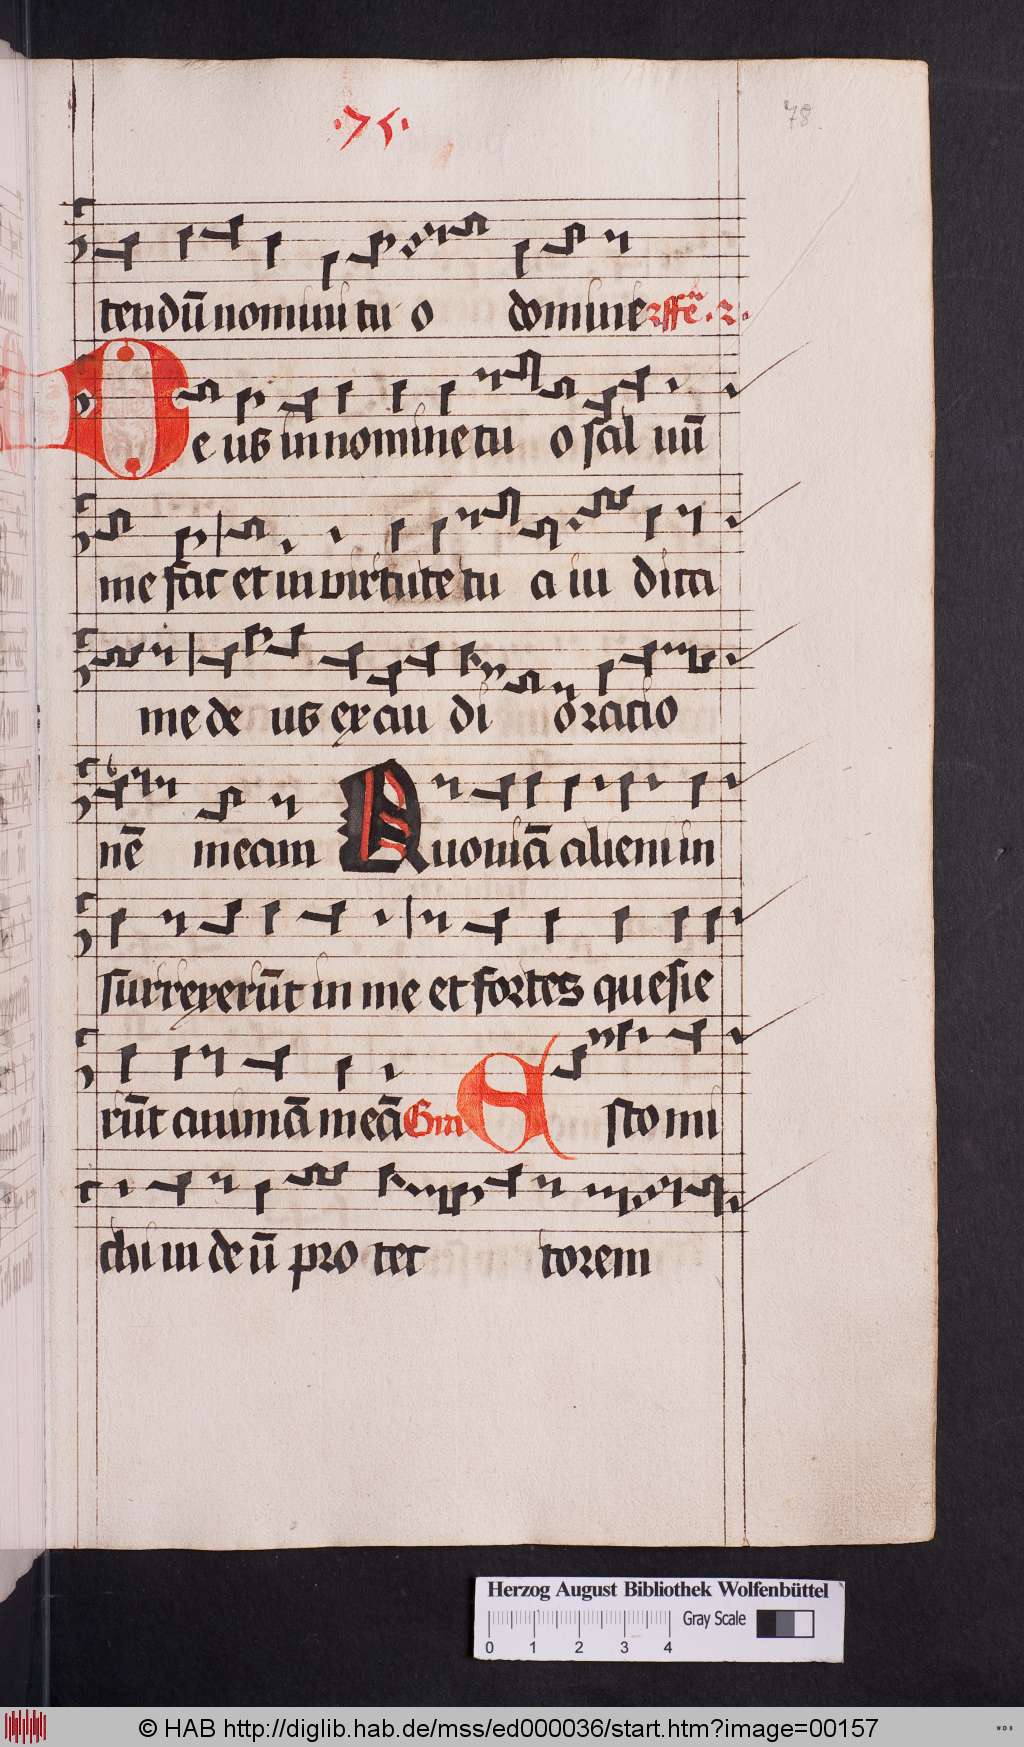 ·75·
78
tendū nomini tu o domine
Deus in nomine tu o sal uū
me fac et in virtute tu a iu dica
me de us exau di oratio
nē meam Quoniā alieni in
surrexerūt in me et fortes quesie
rūt animā meā Gra Esto mi
chi in de ū pro tec torem
Herzog August Bibliothek Wolfenbüttel
Gray Scale
0 1 2 3 4
© HAB http://diglib.hab.de/mss/ed000036/start.htm?image=00157